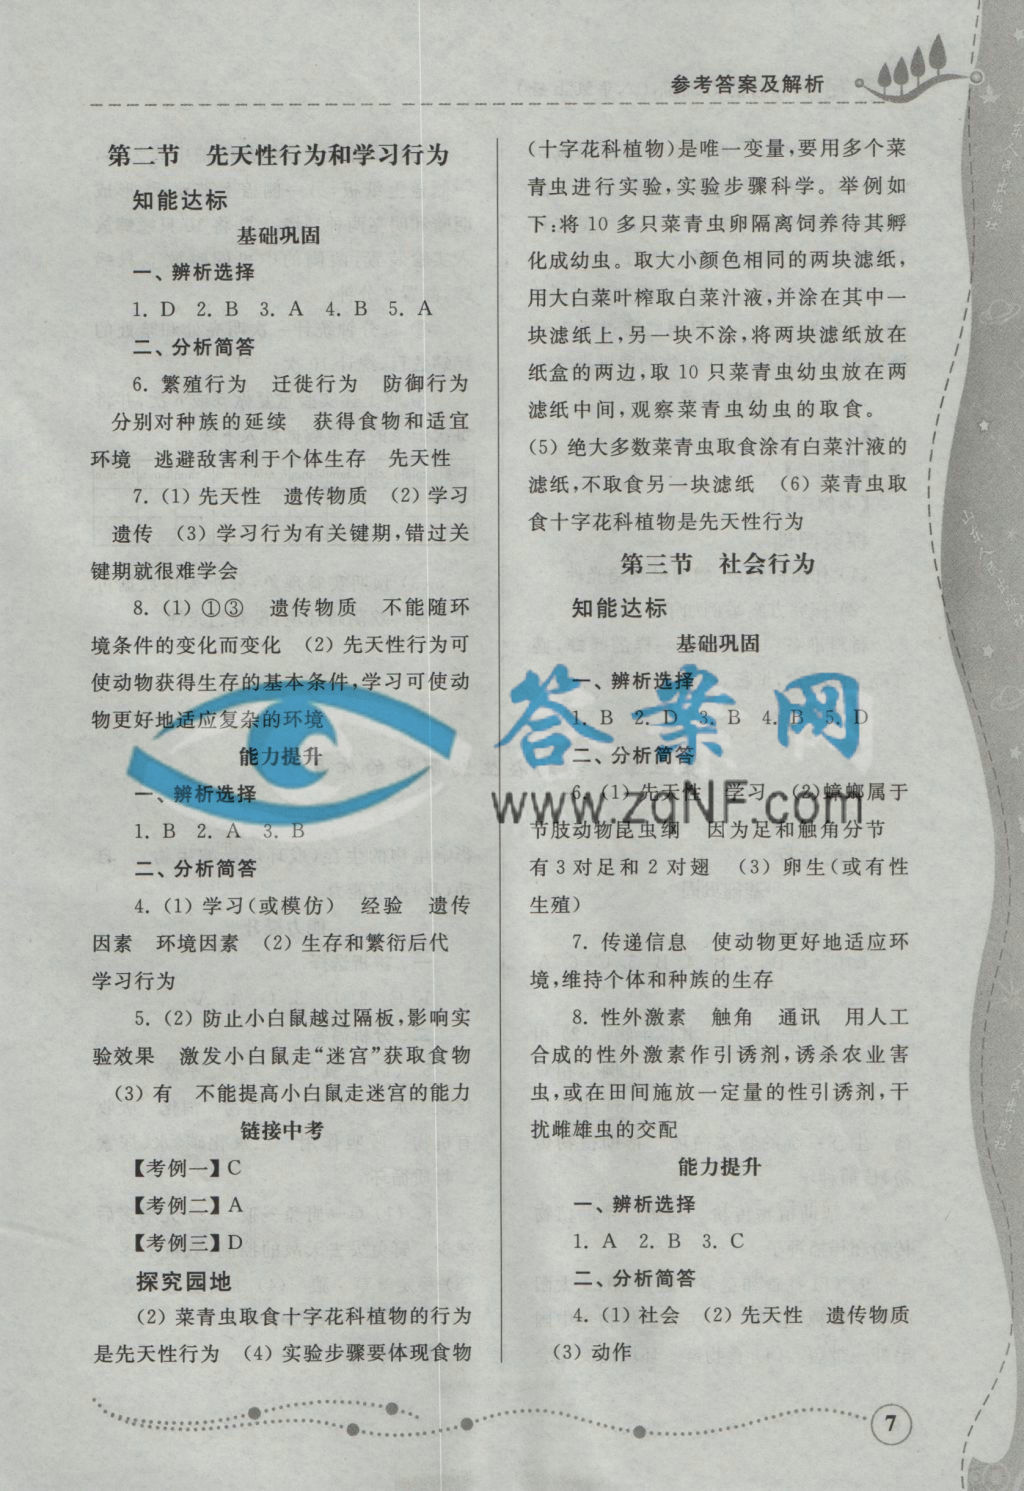 参考答案及解析
第二节　先天性行为和学习行为
知能达标
基础巩固
一、辨析选择
1. D　2. B　3. A　4. B　5. A
二、分析简答
6. 繁殖行为　迁徙行为　防御行为
分别对种族的延续　获得食物和适宜
环境　逃避敌害利于个体生存　先天性
7. (1) 先天性　遗传物质　(2) 学习
遗传　(3) 学习行为有关键期,错过关
键期就很难学会
8. (1) ①③　遗传物质　不能随环
境条件的变化而变化　(2) 先天性行为可
使动物获得生存的基本条件,学习可使动
物更好地适应复杂的环境
能力提升
一、辨析选择
1. B　2. A　3. B
二、分析简答
4. (1) 学习(或模仿)　经验　遗传
因素　环境因素　(2) 生存和繁衍后代
学习行为
5. (2) 防止小白鼠越过隔板,影响实
验效果　激发小白鼠走“迷宫”获取食物
(3) 有　不能提高小白鼠走迷宫的能力
链接中考
【考例一】C
【考例二】A
【考例三】D
探究园地
(2) 菜青虫取食十字花科植物的行为
是先天性行为　(4) 实验步骤要体现食物
(十字花科植物)是唯一变量,要用多个菜
青虫进行实验,实验步骤科学。举例如
下:将 10 多只菜青虫卵隔离饲养待其孵
化成幼虫。取大小颜色相同的两块滤纸,
用大白菜叶榨取白菜汁液,并涂在其中一
块滤纸上,另一块不涂,将两块滤纸放在
纸盒的两边,取 10 只菜青虫幼虫放在两
滤纸中间,观察菜青虫幼虫的取食。
(5) 绝大多数菜青虫取食涂有白菜汁液的
滤纸,不取食另一块滤纸　(6) 菜青虫取
食十字花科植物是先天性行为
第三节　社会行为
知能达标
基础巩固
一、辨析选择
1. B　2. D　3. B　4. B　5. D
二、分析简答
6. (1) 先天性　学习　(2)蟑螂属于
节肢动物昆虫纲　因为足和触角分节
有 3 对足和 2 对翅　(3) 卵生(或有性
生殖)
7. 传递信息　使动物更好地适应环
境,维持个体和种族的生存
8. 性外激素　触角　通讯　用人工
合成的性外激素作引诱剂,诱杀农业害
虫,或在田间施放一定量的性引诱剂,干
扰雌雄虫的交配
能力提升
一、辨析选择
1. A　2. B　3. C
二、分析简答
4. (1) 社会　(2) 先天性　遗传物质
(3) 动作
答案网
www.zqNF.com
7